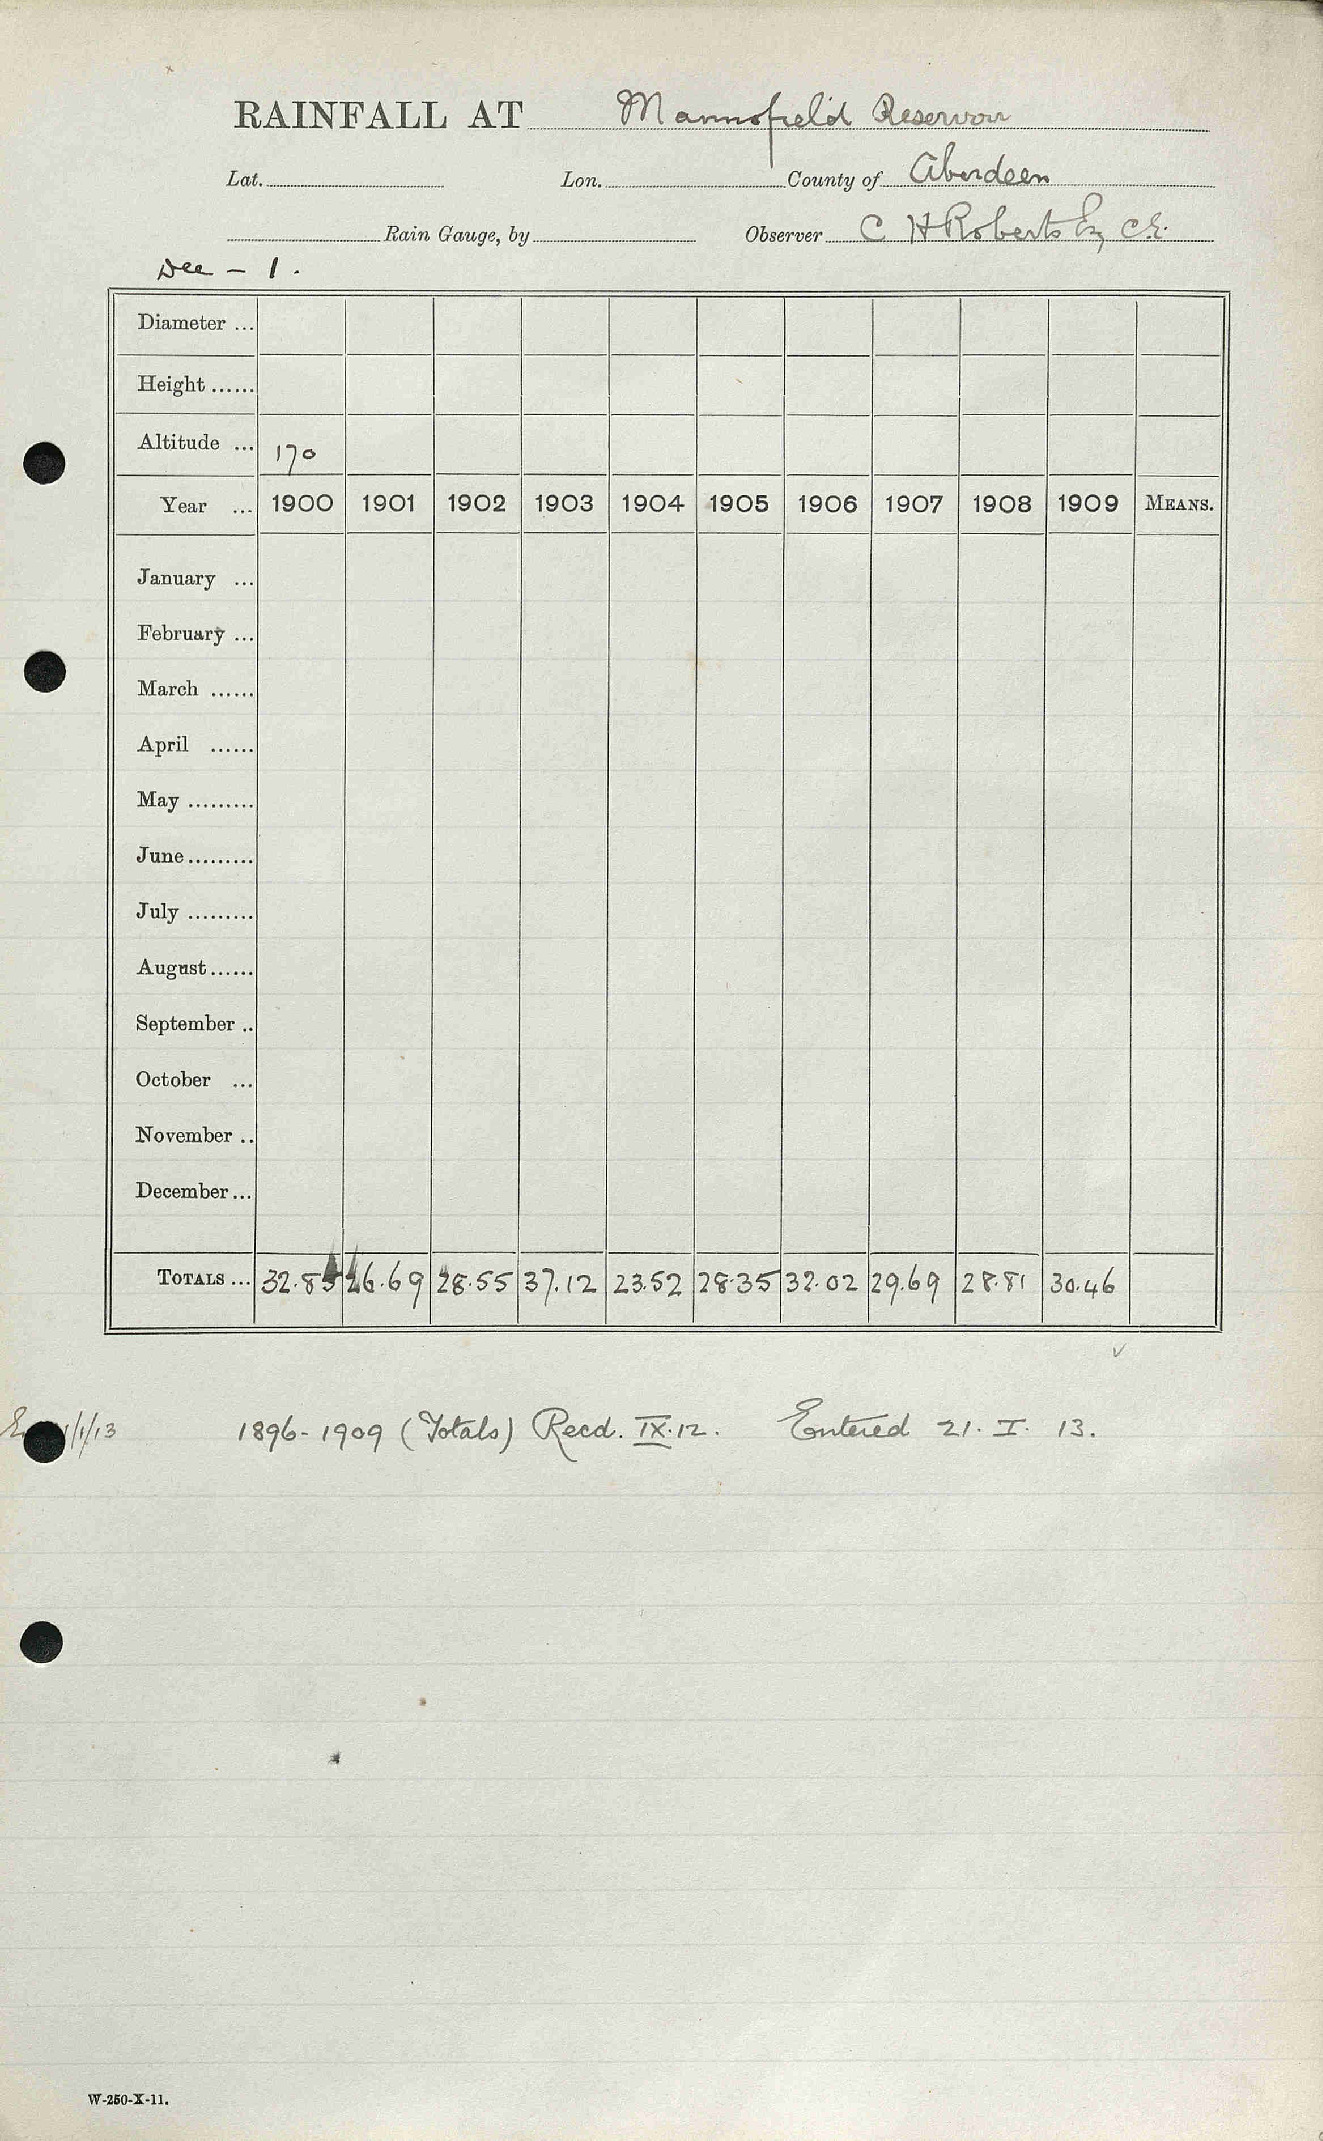 RAINFALL AT Mannofield Reservoir
Lat. Lon. County of Aberdeen
Rain Gauge, by Observer C H Roberts Esq C.E.
Dee - 1.
Diameter ...
Height ......
Altitude ... 170
Year ... 1900 1901 1902 1903 1904 1905 1906 1907 1908 1909 MEANS.
January ...
February ...
March ......
April ......
May .........
June.........
July .........
August......
September ..
October ...
November ..
December...
TOTALS ... 32.85 26.69 28.55 37.12 23.52 28.35 32.02 29.69 28.81 30.46
1/1/13 1896-1909 (Totals) Recd. IX.12. Entered 21. I. 13.
W-250-X-11.